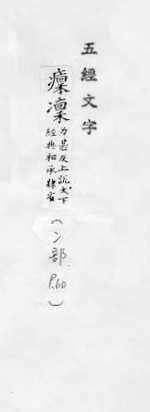 五經文字
癛凜 力甚反上說文下
經典相承隸省
(冫部 P.60)